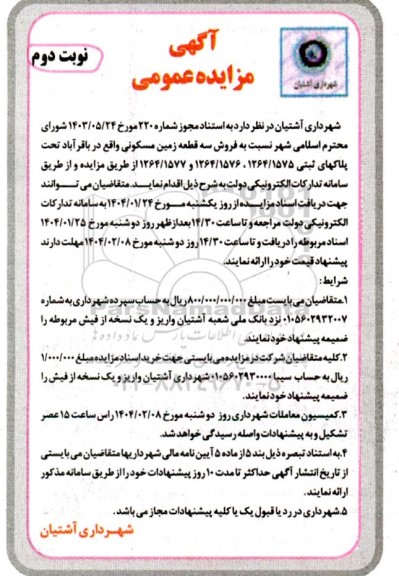 آگهی
مزایده عمومی
نوبت دوم
شهرداری آشتیان
شهرداری آشتیان در نظر دارد به استناد مجوز شماره ۲۲۰ مورخ ۱۴۰۳/۰۵/۲۴ شورای
محترم اسلامی شهر نسبت به فروش سه قطعه زمین مسکونی واقع در باقرآباد تحت
پلاکهای ثبتی ۱۲۶۴/۱۵۷۵ ، ۱۲۶۴/۱۵۷۶ و ۱۲۶۴/۱۵۷۷ از طریق مزایده و از طریق
سامانه تدارکات الکترونیکی دولت به شرح ذیل اقدام نمایند. متقاضیان می توانند
جهت دریافت اسناد مزایده از روز یکشنبه مورخ ۱۴۰۴/۰۱/۲۴ به سامانه تدارکات
الکترونیکی دولت مراجعه و تا ساعت ۱۴/۳۰ بعدازظهر روز دوشنبه مورخ ۱۴۰۴/۰۱/۲۵
اسناد مربوطه را دریافت و تا ساعت ۱۴/۳۰ روز دوشنبه مورخ ۱۴۰۴/۰۲/۰۸ مهلت دارند
پیشنهاد قیمت خود را ارائه نمایند.
شرایط:
۱.متقاضیان می بایست مبلغ ۸۰۰/۰۰۰/۰۰۰ ریال به حساب سپرده شهرداری به شماره
۰۱۰۵۶۰۲۹۳۲۰۰۷ نزد بانک ملی شعبه آشتیان واریز و یک نسخه از فیش مربوطه را
ضمیمه پیشنهاد خود نمایند.
۲.کلیه متقاضیان شرکت در مزایده می بایستی جهت خرید اسناد مزایده مبلغ ۱/۰۰۰/۰۰۰
ریال به حساب سیبا ۰۱۰۵۶۰۲۹۳۰۰۰۰ شهرداری آشتیان واریز و یک نسخه از فیش را
ضمیمه پیشنهاد خود نمایند.
۳.کمیسیون معاملات شهرداری روز دوشنبه مورخ ۱۴۰۴/۰۲/۰۸ راس ساعت ۱۵ عصر
تشکیل و به پیشنهادات واصله رسیدگی خواهد شد.
۴.به استناد تبصره ذیل بند ۵ از ماده ۵ آیین نامه مالی شهرداریها متقاضیان می بایستی
از تاریخ انتشار آگهی حداکثر تا مدت ۱۰ روز پیشنهادات خود را از طریق سامانه مذکور
ارائه نمایند.
۵.شهرداری در رد یا قبول یک یا کلیه پیشنهادات مجاز می باشد.
شهرداری آشتیان
ParsNamadData